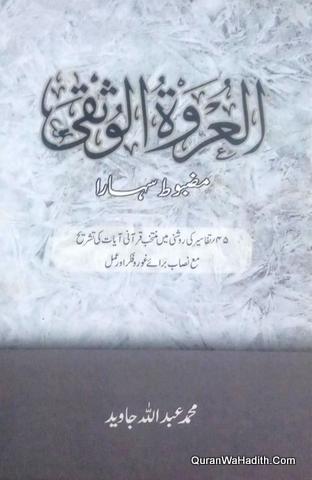 العروة الوثقى
مضبوط سہارا
۴۵؍تفاسیر کی روشنی میں منتخب قرآنی آیات کی تشریح
مع نصاب برائے غور و فکر اور عمل
محمد عبد اللہ جاوید
QuranWaHadith.Com